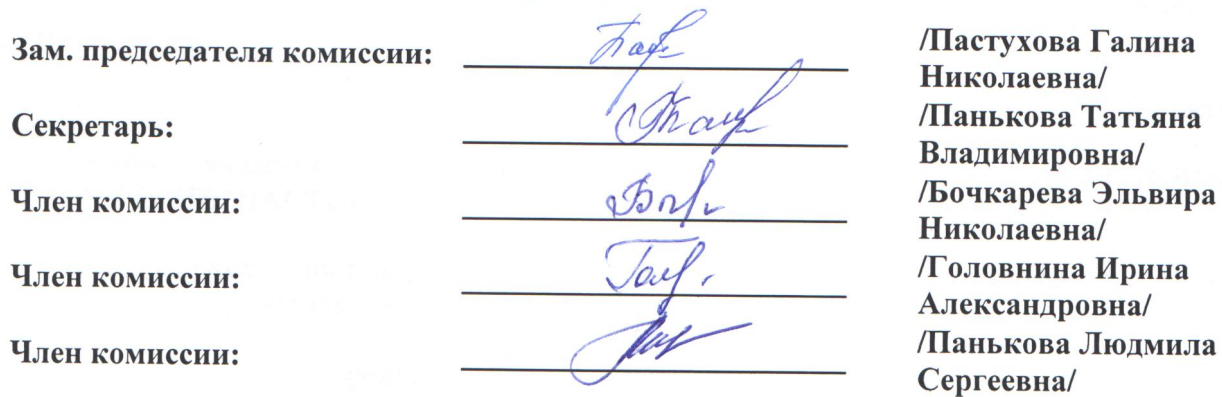 Зам. председателя комиссии: /Пастухова Галина
Николаевна/
Секретарь: /Панькова Татьяна
Владимировна/
Член комиссии: /Бочкарева Эльвира
Николаевна/
Член комиссии: /Головнина Ирина
Александровна/
Член комиссии: /Панькова Людмила
Сергеевна/